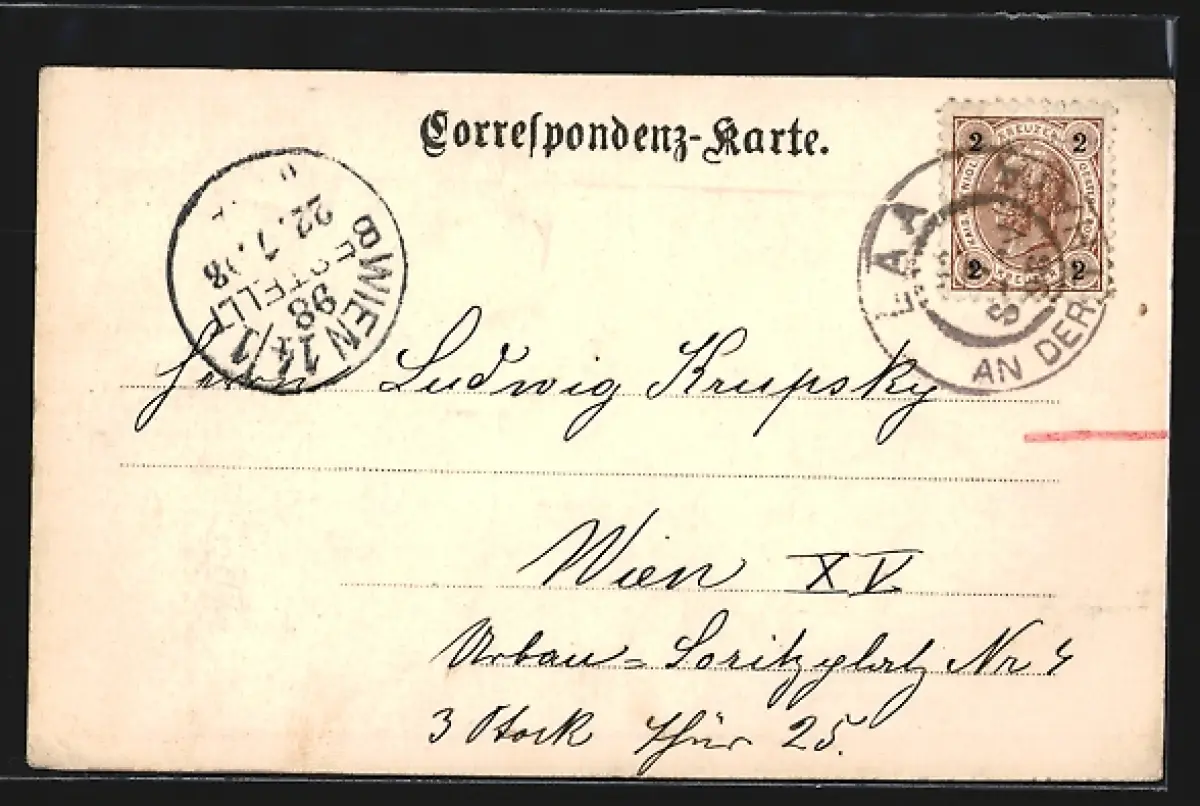 Correspondenz-Karte.
2 KREUZER 2
2 2
LAA AN DER
WIEN 14/1
98
BESTELLT
22. 7. 98
Herrn Ludwig Krupsky
Wien XV
Urban-Loritzplatz Nr 4
3 Stock Thür 25.